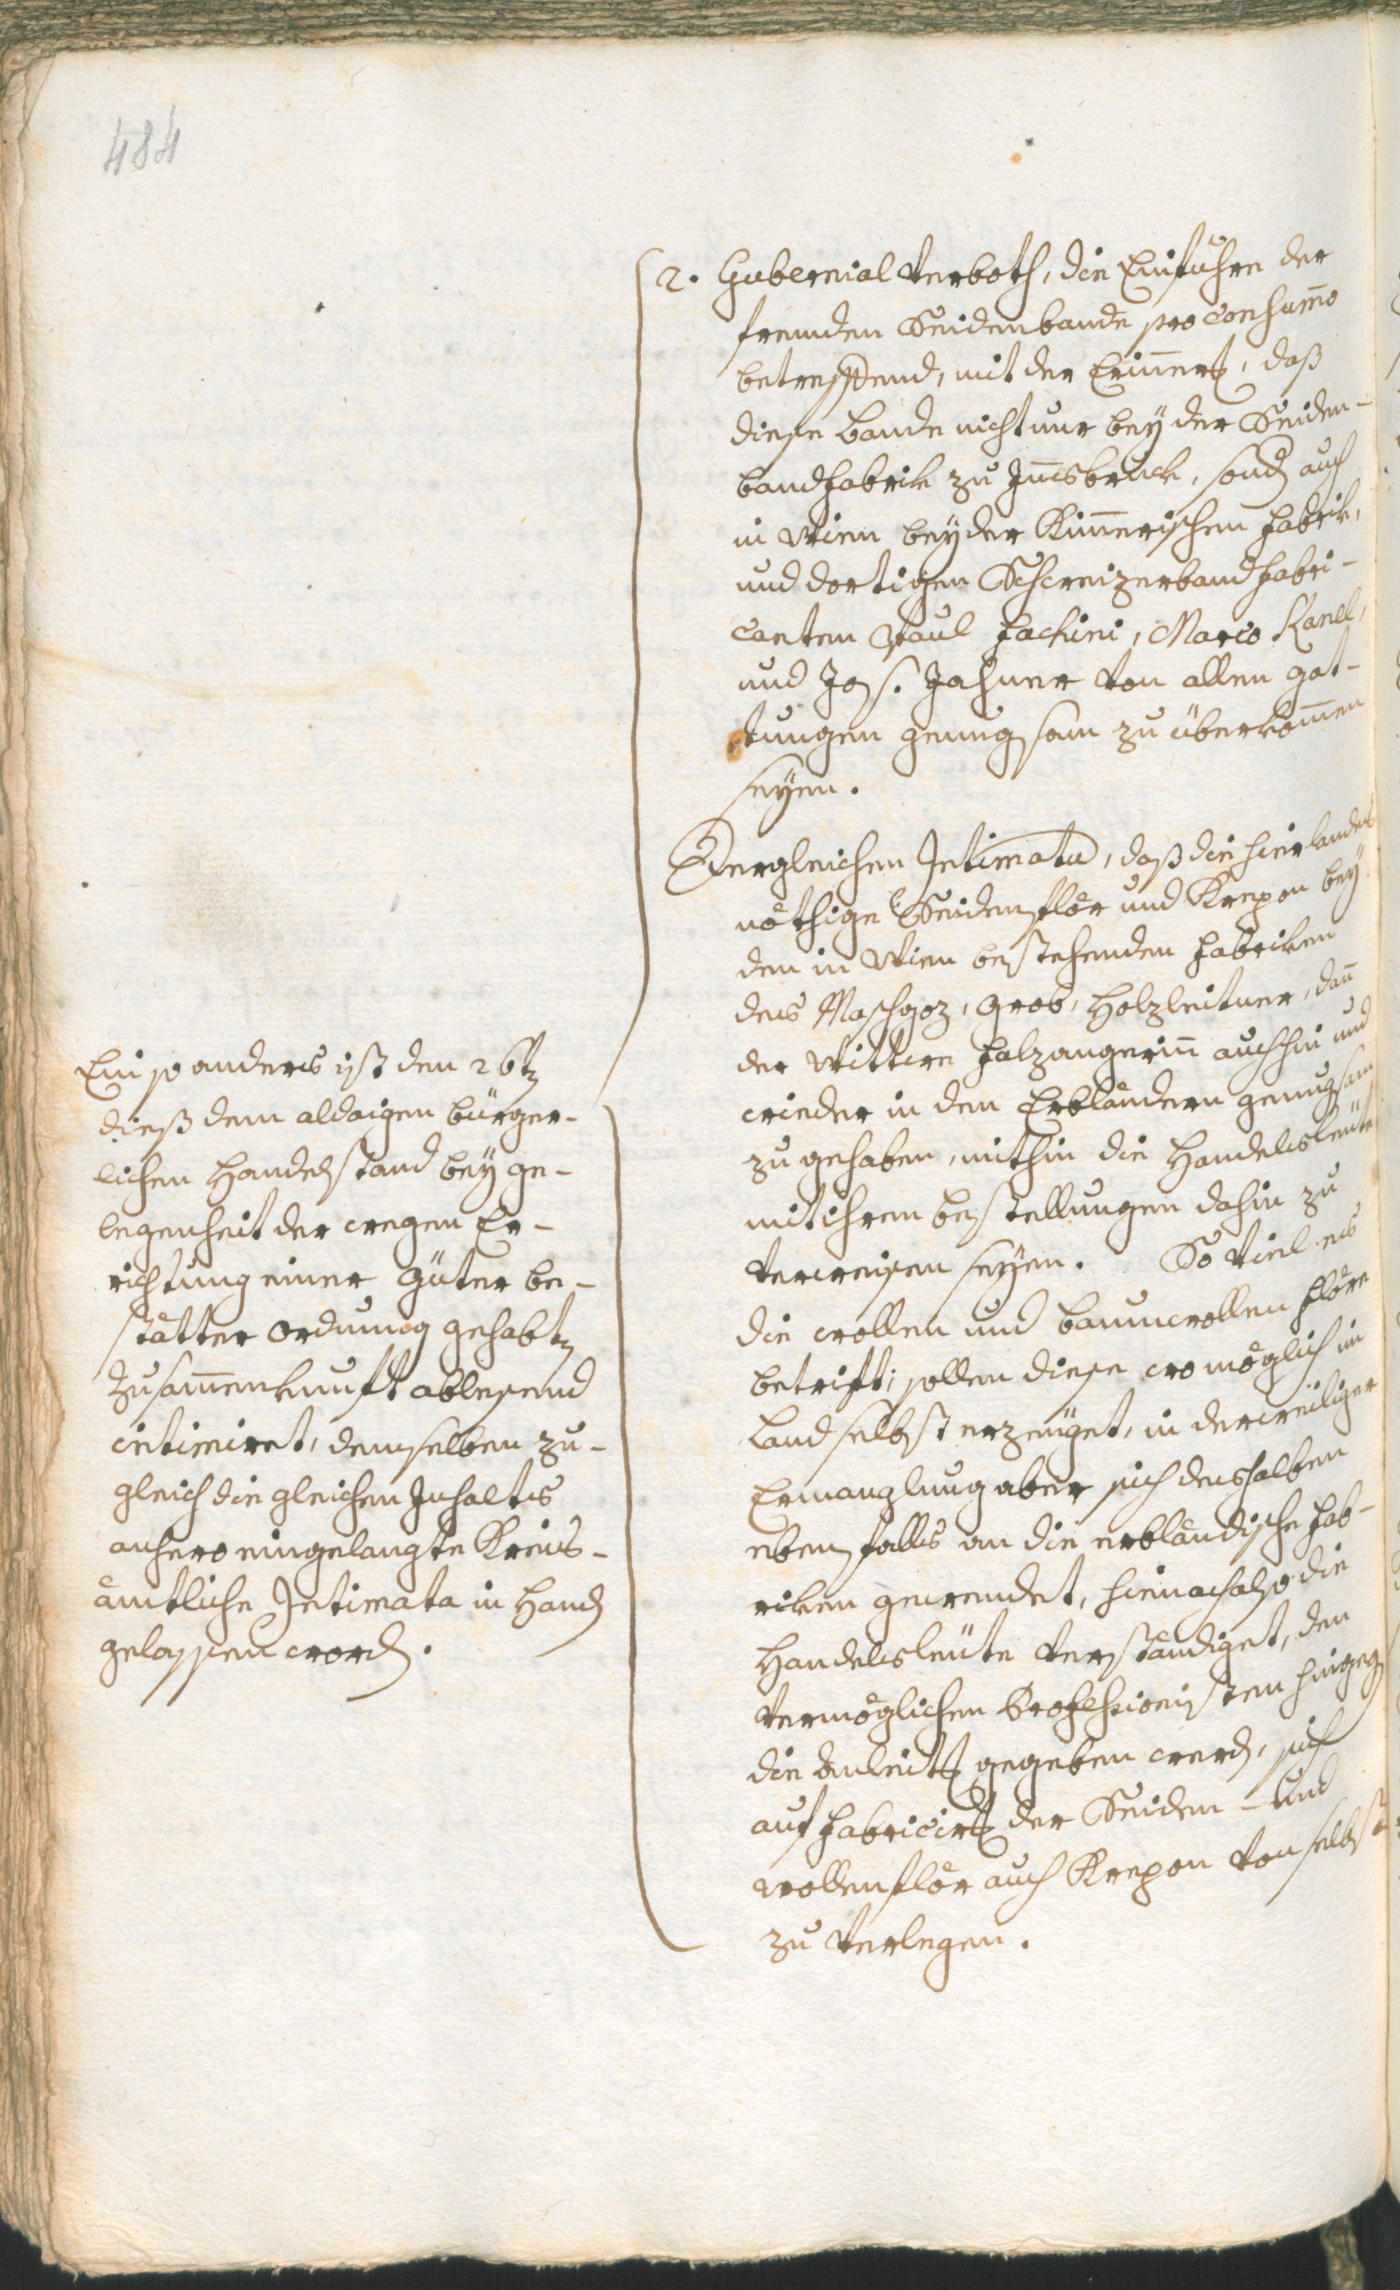 484
2. Gubernial Verboth, die Einfuhre der
fremden Seidenbande pro Consumo
betreffend, mit der Erinnerg, daß
diese Bande nicht nur bey der Seiden-
bandfabrik zu Innsbruck, sond auch
in Wien bey der Kimerischen Fabrik,
und dortigen Schweizerbandfabri-
canten Paul Fachini, Marco Kanel,
und Jos. Jahner von allen gat-
tungen genugsam zu überkomen
seyen.
Dergleichen Intimatu, daß die hierlandes
nöthige Seidenflör und Krepon bey
den in Wien bestehenden Fabriken
des Maschgoz, Grob, Holzleitner, dan
der Wittwe Falzangerinn auch hin und
wieder in den Erbländern genugsam
zu gehaben, mithin die Handelsleute
mit ihren bestellungen dahin zu
verweisen seyen. So viel es
die wollen und baumwollen Flöre
betrift; sollen diese wo möglich im
Land selbst erzeuget, in derweiliger
Ermanglung aber sich desshalben
ebenfalls an die erbländische Fab-
riken gewendet, hienach also die
Handelsleute verständiget, den
vermöglichen Professionisten hingeg
die Anleitg gegeben werd, sich
auf Fabricirg der Seiden- und
wollenflör auch Krepon von selbst
zu verlegen.
Ein so anders ist den 26tn
dieß dem aldaigen bürger-
lichen Handelstand bey ge-
legenheit der wegen Er-
richtung einer Güter be-
stätter Ordnung gehabtn
Zusamenkunft ablesend
intimiret, demselben zu-
gleich die gleichen Inhaltes
anhero eingelangte Kreis-
ämtliche Intimata in Hand
gelassen word.